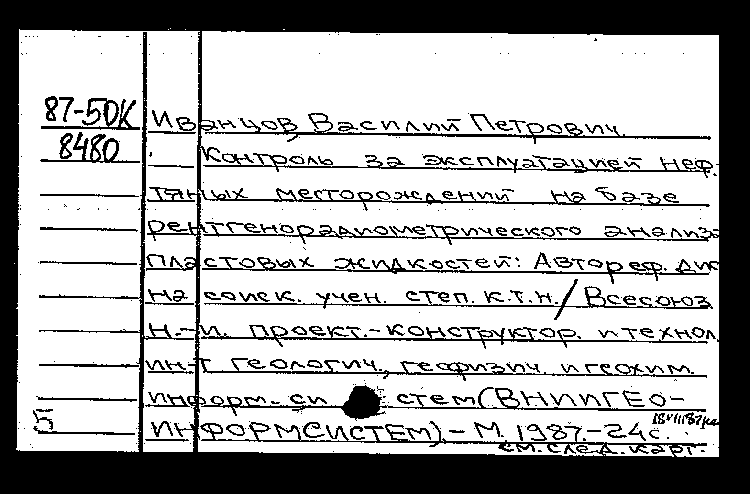 87-50К Иванцов Василий Петрович.
8480 Контроль за эксплуатацией неф-
тяных месторождений на базе
рентгенорадиометрического анализа
пластовых жидкостей: Автореф. дис
на соиск. учен. степ. к.т.н./Всесоюз
н.-и. проект.-конструктор. и технол
ин-т геологич., геофизич. и геохим.
информ. си стем (ВНИИГЕО-
5 ИНФОРМСИСТЕМ).- М. 1987.-24с.
см. след. карт.